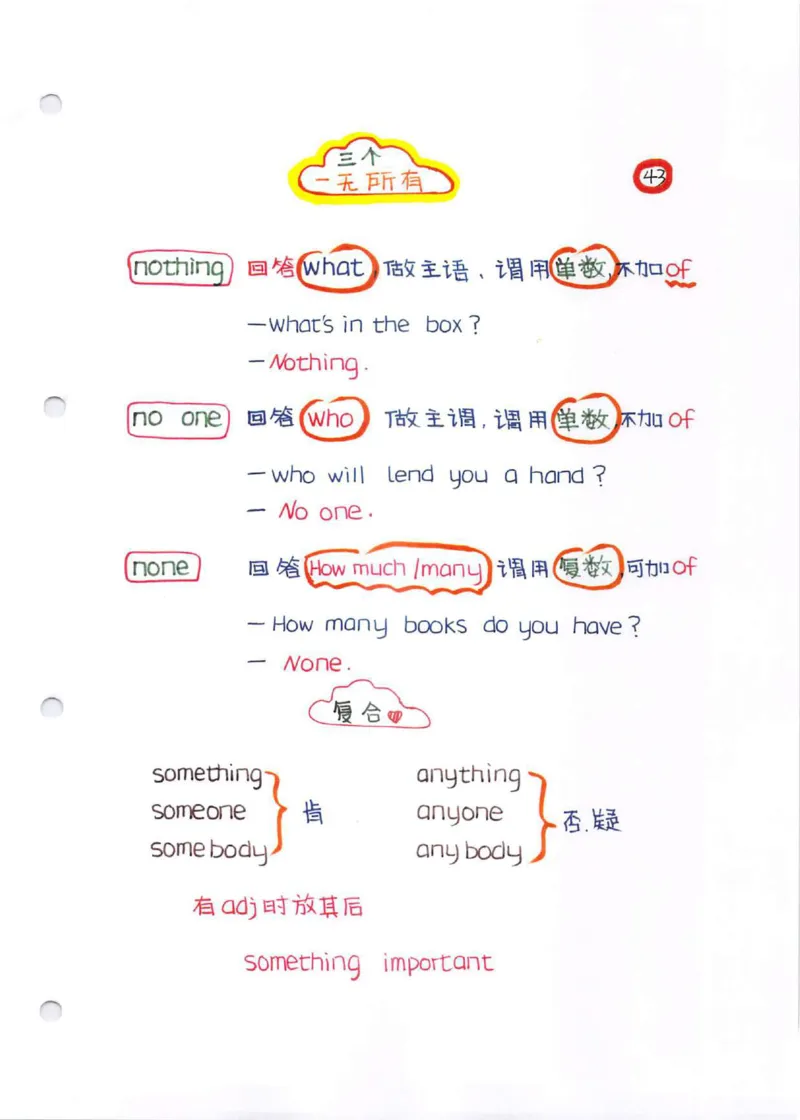 三个
一无所有
43
nothing 回答 what, 做主语、谓用单数, 不加of
—What's in the box?
—Nothing.
no one 回答 who 做主调, 谓用单数, 不加of
—who will lend you a hand?
— No one.
none 回答 How much/many 谓用复数, 可加of
—How many books do you have?
— None.
复合
something anything
someone 肯 anyone 否.疑
somebody anybody
有adj时放其后
something important